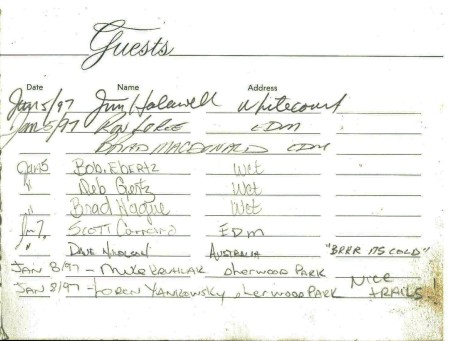 Guests
Date Name Address
Jan 5/97 Jim Halawell Whitecourt
Jan 5/97 Ron EDM
Brad MacDonald EDM
Jan 5 Bob Ebertz Wet
" Deb Gertz Wet
" Brad Hague Wet
Jan 7. Scott EDM
" Dave Australia "BRRR ITS COLD"
Jan 8/97 - Mike Sherwood Park Nice
Jan 8/97 - Loren Yanizowsky Sherwood Park trails